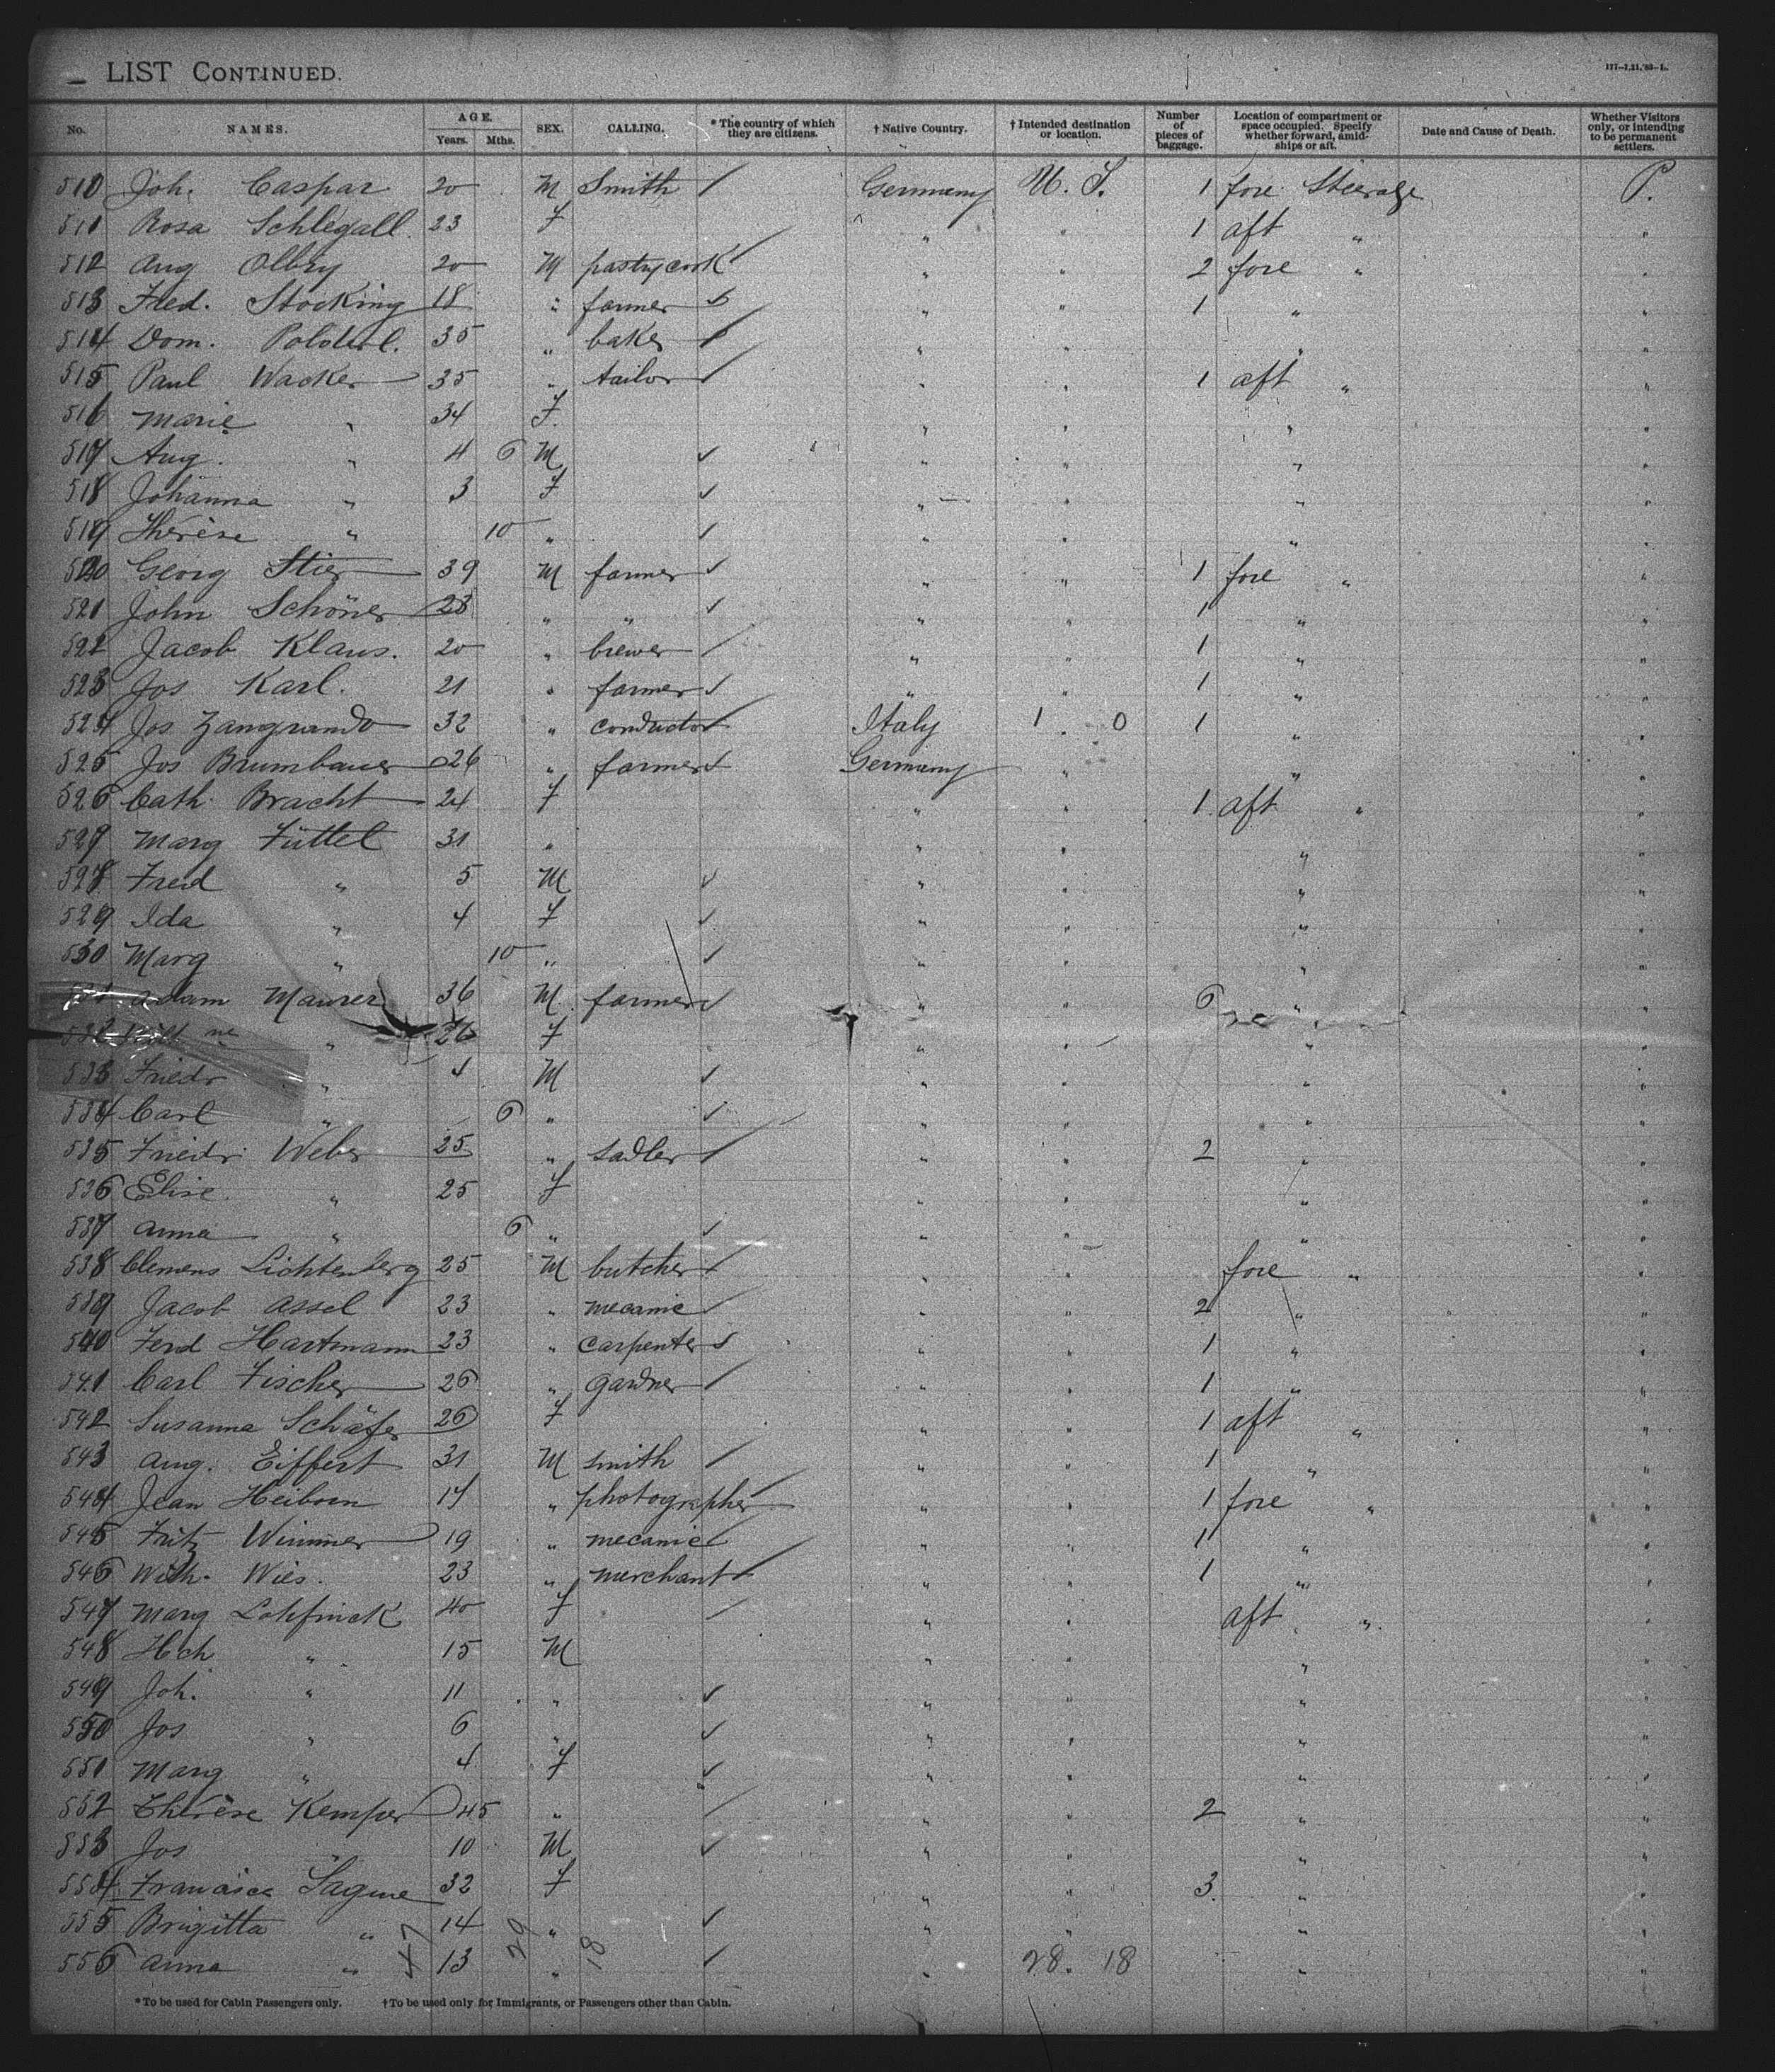 LIST CONTINUED.
177-7.21.'83-L.
No. NAMES. AGE. Years. Mths. SEX. CALLING. * The country of which they are citizens. † Native Country. † Intended destination or location. Number of pieces of baggage. Location of compartment or space occupied. Specify whether forward, amidships or aft. Date and Cause of Death. Whether Visitors only, or intending to be permanent settlers.
510 Joh. Caspar 20 M Smith / Germany U. S. 1 fore Steerage P.
511 Rosa Schlegall 23 F " " 1 aft " "
512 Aug Olbry 20 M pastrycook " " 2 fore " "
513 Fred. Stocking 18 " farmer " " 1 " "
514 Dom. 35 " baker " " " "
515 Paul Wacker 35 " tailor " " 1 aft " "
516 Marie " 34 F. " " " "
517 Aug. " 4 6 M ✓ " " " "
518 Johanna " 3 F ✓ " " " "
519 Therèse " 10 " ✓ " " " "
520 Georg Stier 39 M farmer ✓ " " 1 fore " "
521 John Schöner 23 " " ✓ " " 1 " "
522 Jacob Klaus. 20 " brewer / " " 1 " "
523 Jos Karl. 21 " farmer ✓ " " 1 " "
524 Jos Zangrando 32 " conductor Italy 1 " 0 1 " "
525 Jos Brumbauer 26 " farmer ✓ Germany " " "
526 Cath. Bracht 24 F " " 1 aft " "
527 Marg Füttel 31 " " " " "
528 Fred " 5 M ✓ " " " "
529 Ida " 4 F ✓ " " " "
530 Marg " 10 " ✓ " " " "
Adam Maurer 36 M farmer ✓ " " 6 " "
532 " 26 F " " " "
533 Friedr " 4 M ✓ " " " "
534 Carl " 6 " ✓ " " " "
535 Friedr. Weber 25 " sadler / " " 2 " "
536 Elise " 25 F " " " "
537 Anna " 6 " ✓ " " " "
538 Clemens Lichtenberg 25 M butcher " " fore " "
539 Jacob Assel 23 " mecanic " " 2 " "
540 Ferd Hartmann 23 " carpenter " " 1 " "
541 Carl Fischer 26 " gardner / " " 1 " "
542 Susanna Schäfer 26 F " " 1 aft " "
543 Aug. Eiffert 31 M smith / " " 1 " "
544 Jean Heiborn 17 " photographer " " 1 fore " "
545 Fritz Wimmer 19 " mecanic " " 1 " "
546 Wilh. Wies. 23 " merchant " " 1 " "
547 Marg Lohfinck 40 F / " " aft " "
548 Hch " 15 M " " " "
549 Joh. " 11 " ✓ " " " "
550 Jos " 6 " ✓ " " " "
551 Marg " 4 F ✓ " " " "
552 Therèse Kemper 45 " / " " 2 " "
553 Jos " 10 M ✓ " " " "
554 Francisca 32 F " " 3 " "
555 Brigitta " 14 " ✓ " " " "
556 Anna " 47 13 29 " 18 / " 28. 18 " "
*To be used for Cabin Passengers only. †To be used only for Immigrants, or Passengers other than Cabin.